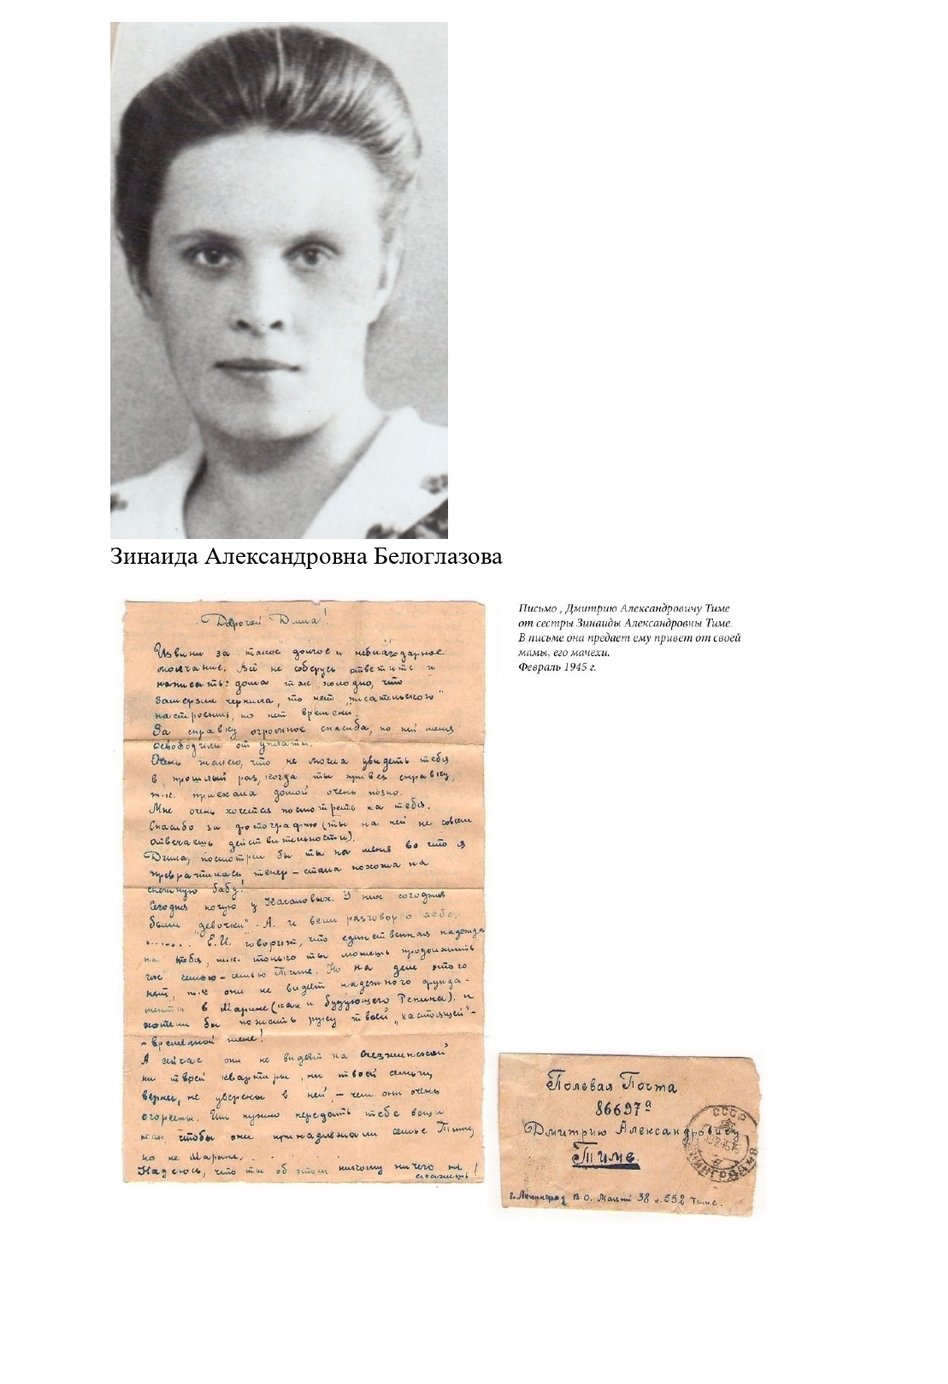 Зинаида Александровна Белоглазова
Дорогой Дима!
Извини за такое долгое и неблагодарное
молчание. Всё не соберусь ответить и
написать: дома так холодно, что
замерзли чернила, то нет „писательского"
настроения, то нет времени.
За справку огромное спасибо, по ней меня
освободили от уплаты.
Очень жалею, что не могла увидеть тебя
в прошлый раз, когда ты привез справку,
т.к. приехала домой очень поздно.
Мне очень хочется посмотреть на тебя.
Спасибо за фотографию (ты на ней не совсем
отвечаешь действительности).
Дима, посмотрел бы ты на меня во что я
превратилась теперь – стала похожа на
снежную бабу!
Сегодня ночую у Касаловых. У них сегодня
были „девочки". А. и вели разговор о
...... Е.И. говорит, что единственная надежда
на тебя, т.к. только ты можешь продолжить
их семью – семью Тиме. Но на деле этого
нет, т.к они не видят надежного фунда-
мента в Марине (как и будующего Репина) и
хотели бы пожать руку твоей „настоящей" –
- временной жене!
А сейчас они не видят на
ни твоей квартиры, ни твоей семьи,
вернее, не уверены в ней, – чем они очень
огорчены. Им нужно передать тебе вещи
как чтобы они принадлежали семье Тиме,
но не Марине,. . .
Надеюсь, что ты об этом никому ничего не
скажешь!
Письмо , Дмитрию Александровичу Тиме
от сестры Зинаиды Александровны Тиме.
В письме она предает ему привет от своей
мамы, его мачехи.
Февраль 1945 г.
Полевая Почта
86697а
Дмитрию Александровичу
Тиме.
г. Ленинград В О. Малый 38 к. 552 Тиме.
СССР
ЛЕНИНГРАД